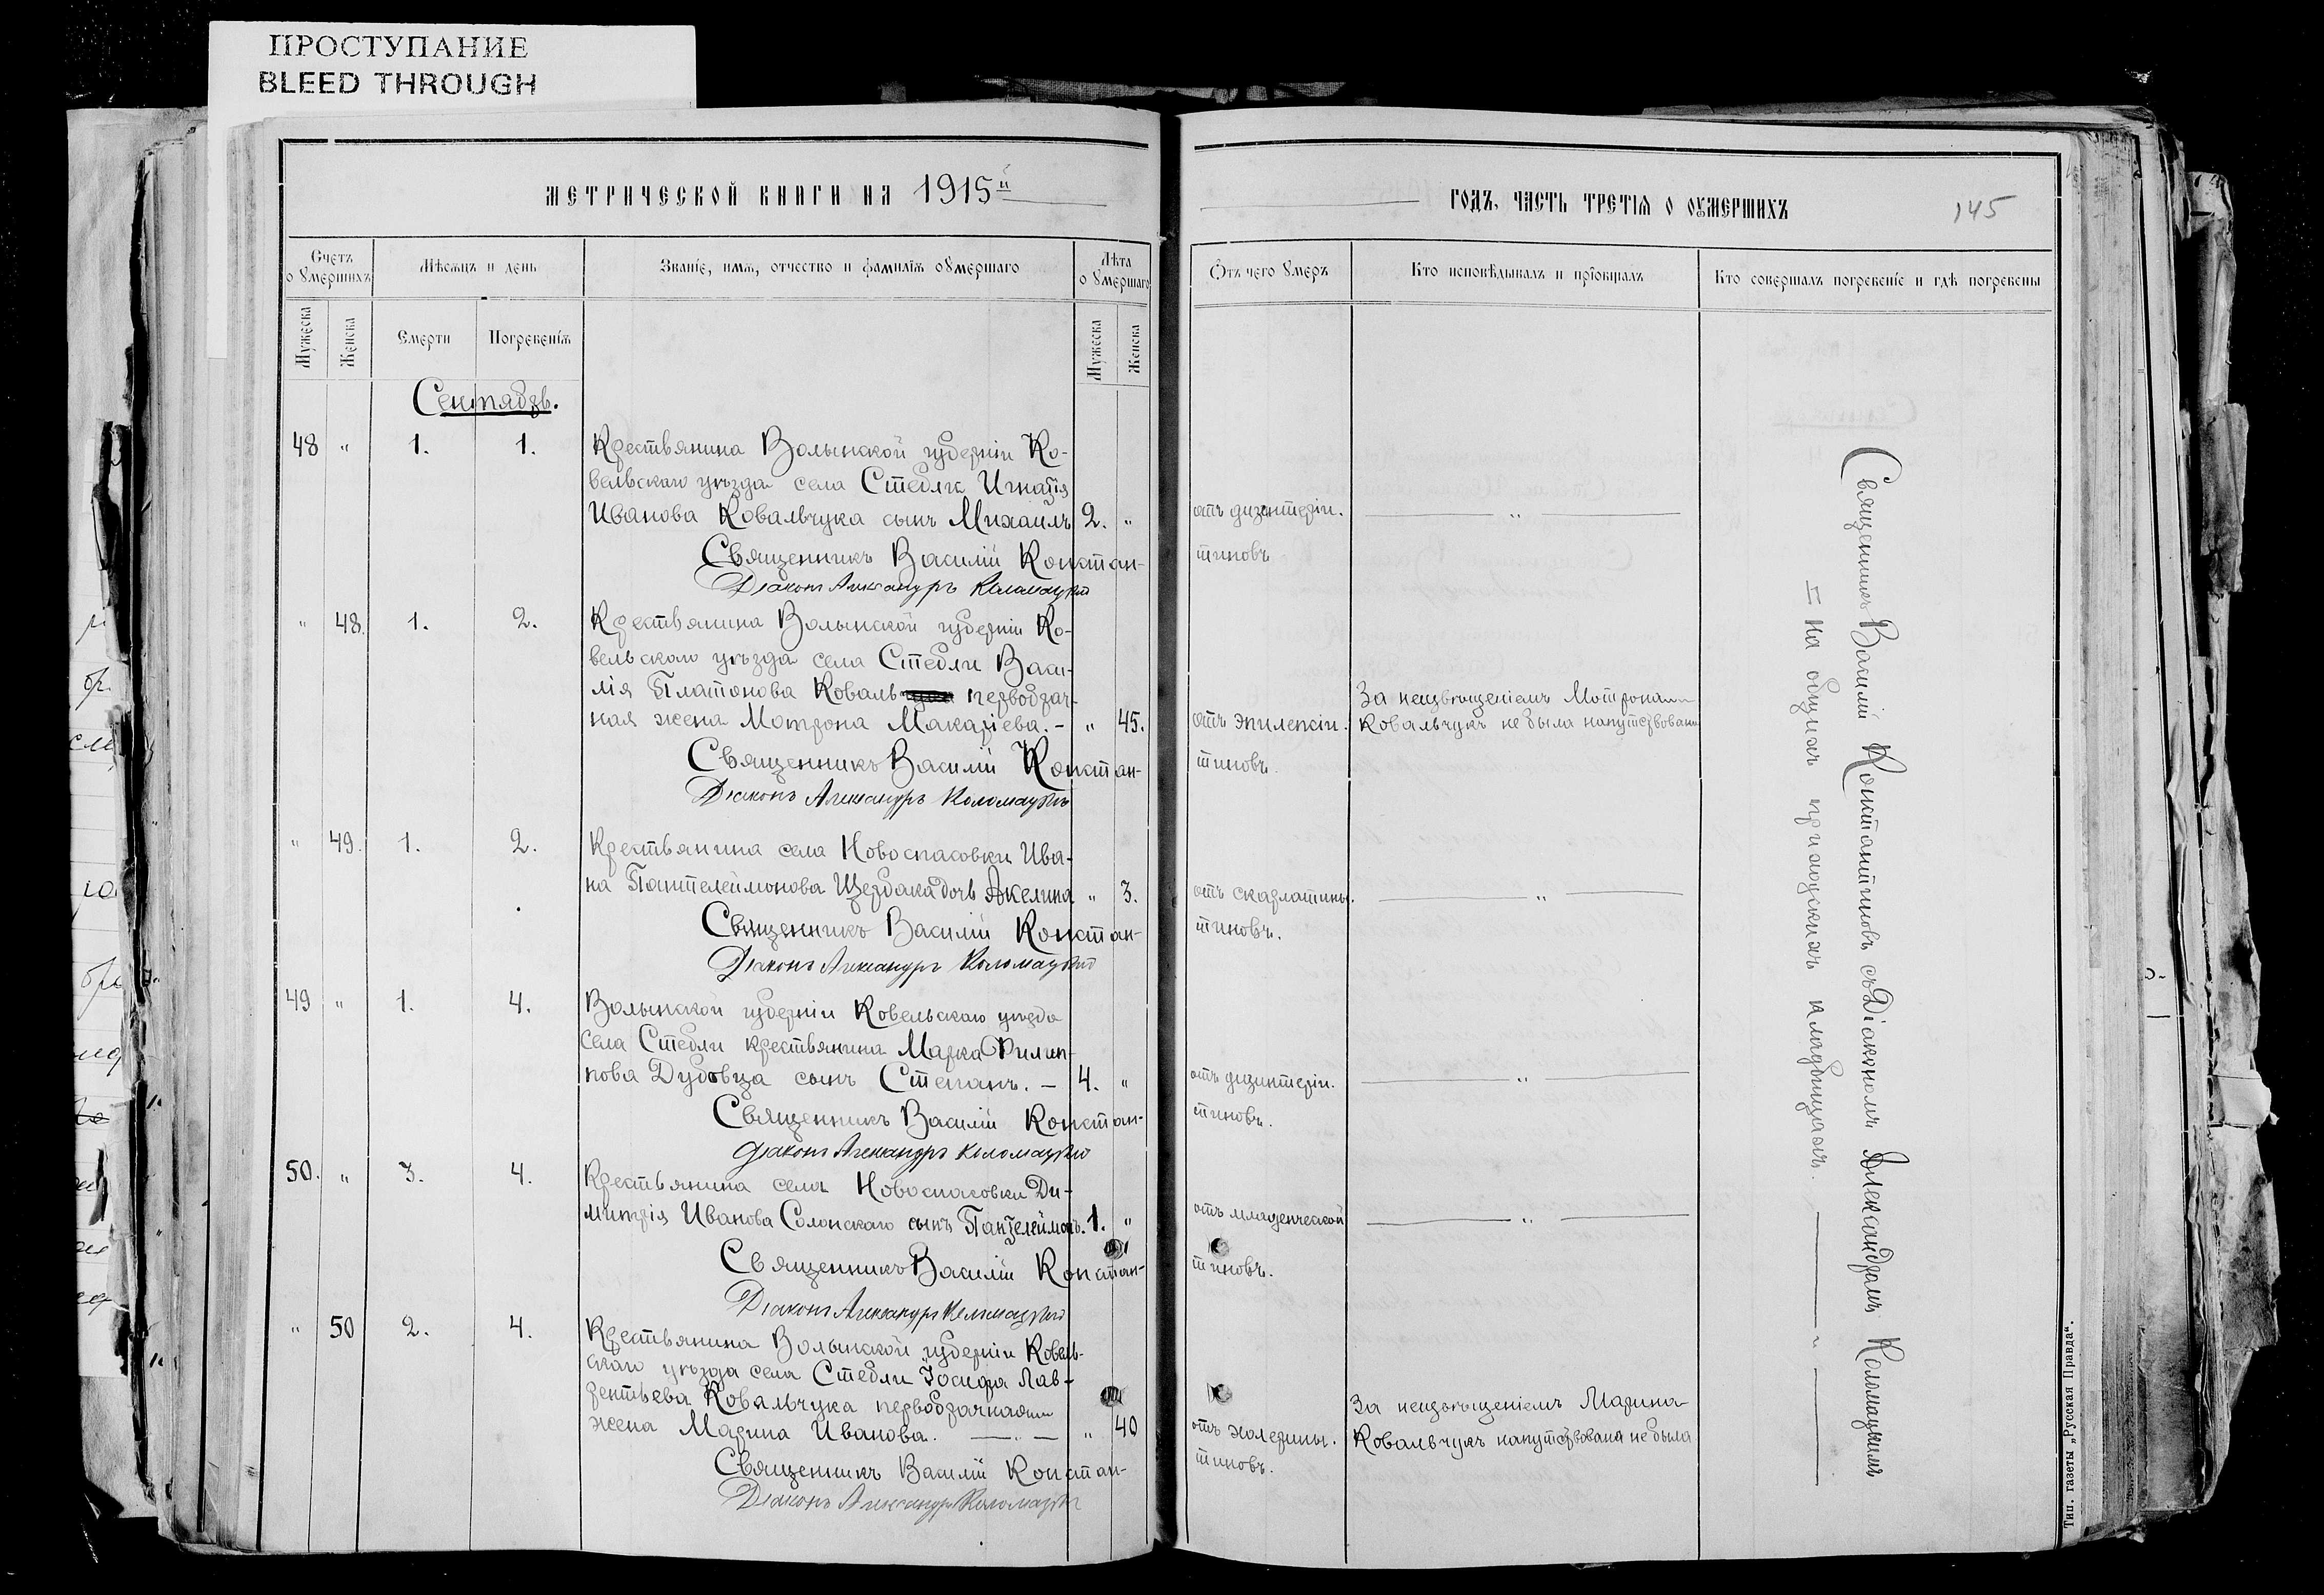 ПРОСТУПАНИЕ
BLEED THROUGH
МЕТРИЧЕСКОЙ КНИГИ НА 1915й
Счетъ оумершихъ
Мѣсяцъ и день
Званіе, имя, отчество и фамилія оумершаго
Лѣта оумершаго
Мужеска
Женска
Смерти
Погребенія
Мужеска
Женска
Сентябрь.
48 " 1. 1. Крестьянина Волынской губерніи Ко-
вельскаго уѣзда села Стебли Игнатія
Иванова Ковальчука сынъ Михаилъ 2. "
Священникъ Василій Констан-
Діаконъ Александръ Коломацкій
" 48. 1. 2. Крестьянина Волынской губерніи Ко-
вельскаго уѣзда села Стебли Васи-
лія Платонова Коваль первобрач-
ная жена Мотрона Макаріева. – " 45.
Священникъ Василій Констан-
Діаконъ Александръ Коломацкій
" 49. 1. 2. Крестьянина села Новоспасовки Ива-
на Пантелеймонова Щербака дочь Акелина " 3.
Священникъ Василій Констан-
Діаконъ Александръ Коломацкій
49 " 1. 4. Волынской губерніи Ковельскаго уѣзда
села Стебли крестьянина Марка Филип-
пова Дубовца сынъ Степанъ. – 4. "
Священникъ Василій Констан-
Діаконъ Александръ Коломацкій
50. " 3. 4. Крестьянина села Новоспасовки Ди-
митрія Иванова Солонскаго сынъ Пантелеймонъ. 1. "
Священникъ Василій Констан-
Діаконъ Александръ Коломацкій
" 50 2. 4. Крестьянина Волынской губерніи Ковель-
скаго уѣзда села Стебли Іосифа Лав-
рентьева Ковальчука первобрачная
жена Марина Иванова. " 40
Священникъ Василій Констан-
Діаконъ Александръ Коломацкій
ГОДЪ, ЧАСТЬ ТРЕТІЯ О ОУМЕРШИХЪ
145
Отъ чего умеръ
Кто исповѣдывалъ и пріобщалъ
Кто совершалъ погребеніе и гдѣ погребены
отъ дизентеріи. "
тиновъ
За неизвѣщеніемъ Мотрона
отъ эпилепсіи. Ковальчукъ не была напутствована
тиновъ.
отъ скарлатины. "
тиновъ.
отъ дизинтеріи. "
тиновъ.
отъ младенческой "
тиновъ.
За неизвѣщеніемъ Марина
отъ холерины. Ковальчукъ напутствована не была
тиновъ.
Священникъ Василій Константиновъ съ Діакономъ Александромъ Коломацкимъ
на общихъ приходскихъ кладбищахъ.
Тип. газеты „Русская Правда“.